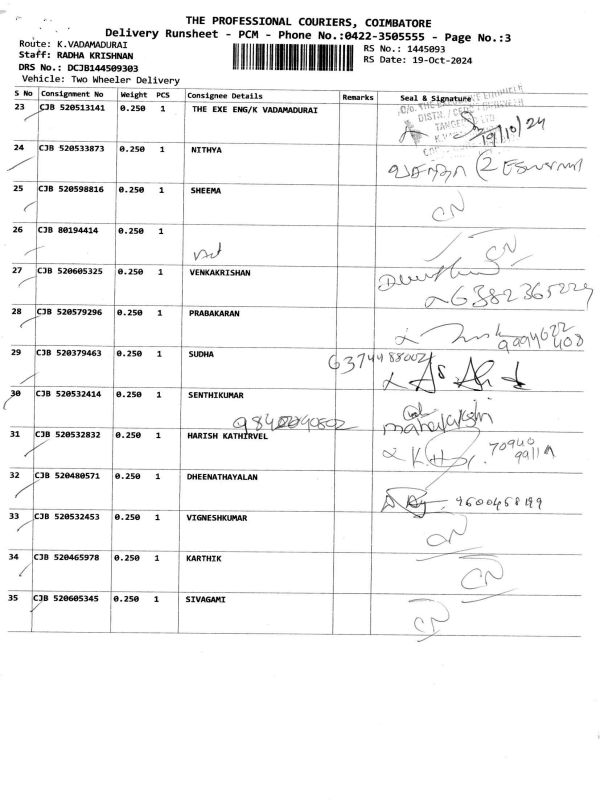 THE PROFESSIONAL COURIERS, COIMBATORE
Delivery Runsheet - PCM - Phone No.:0422-3505555 - Page No.:3
Route: K.VADAMADURAI
RS No.: 1445093
Staff: RADHA KRISHNAN
RS Date: 19-Oct-2024
DRS No.: DCJB144509303
Vehicle: Two Wheeler Delivery
S No Consignment No Weight PCS Consignee Details Remarks Seal & Signature
23 CJB 520513141 0.250 1 THE EXE ENG/K VADAMADURAI
19/10/24
24 CJB 520533873 0.250 1 NITHYA
25 CJB 520598816 0.250 1 SHEEMA
CN
26 CJB 80194414 0.250 1
CN
27 CJB 520605325 0.250 1 VENKAKRISHAN
6382365229
28 CJB 520579296 0.250 1 PRABAKARAN
9994622
408
29 CJB 520379463 0.250 1 SUDHA
6374488002
30 CJB 520532414 0.250 1 SENTHIKUMAR
9840040802
31 CJB 520532832 0.250 1 HARISH KATHIRVEL
70940
32 CJB 520480571 0.250 1 DHEENATHAYALAN
9600458199
33 CJB 520532453 0.250 1 VIGNESHKUMAR
CN
34 CJB 520465978 0.250 1 KARTHIK
CN
35 CJB 520605345 0.250 1 SIVAGAMI
CN